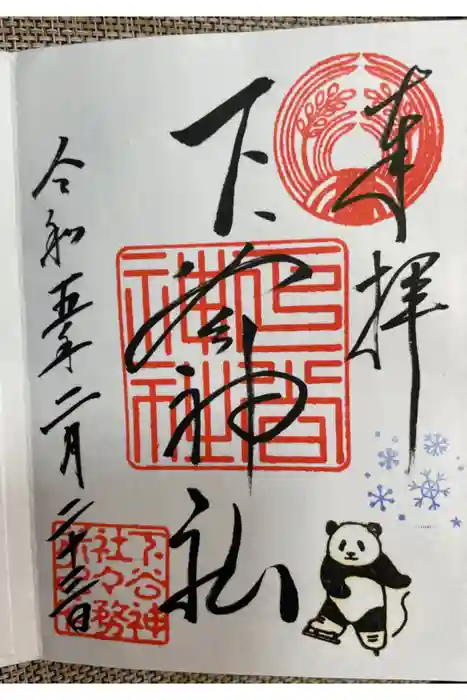 奉拝
下谷神社
下谷神社
令和五年二月二十三日
下谷神
社々務
所之印